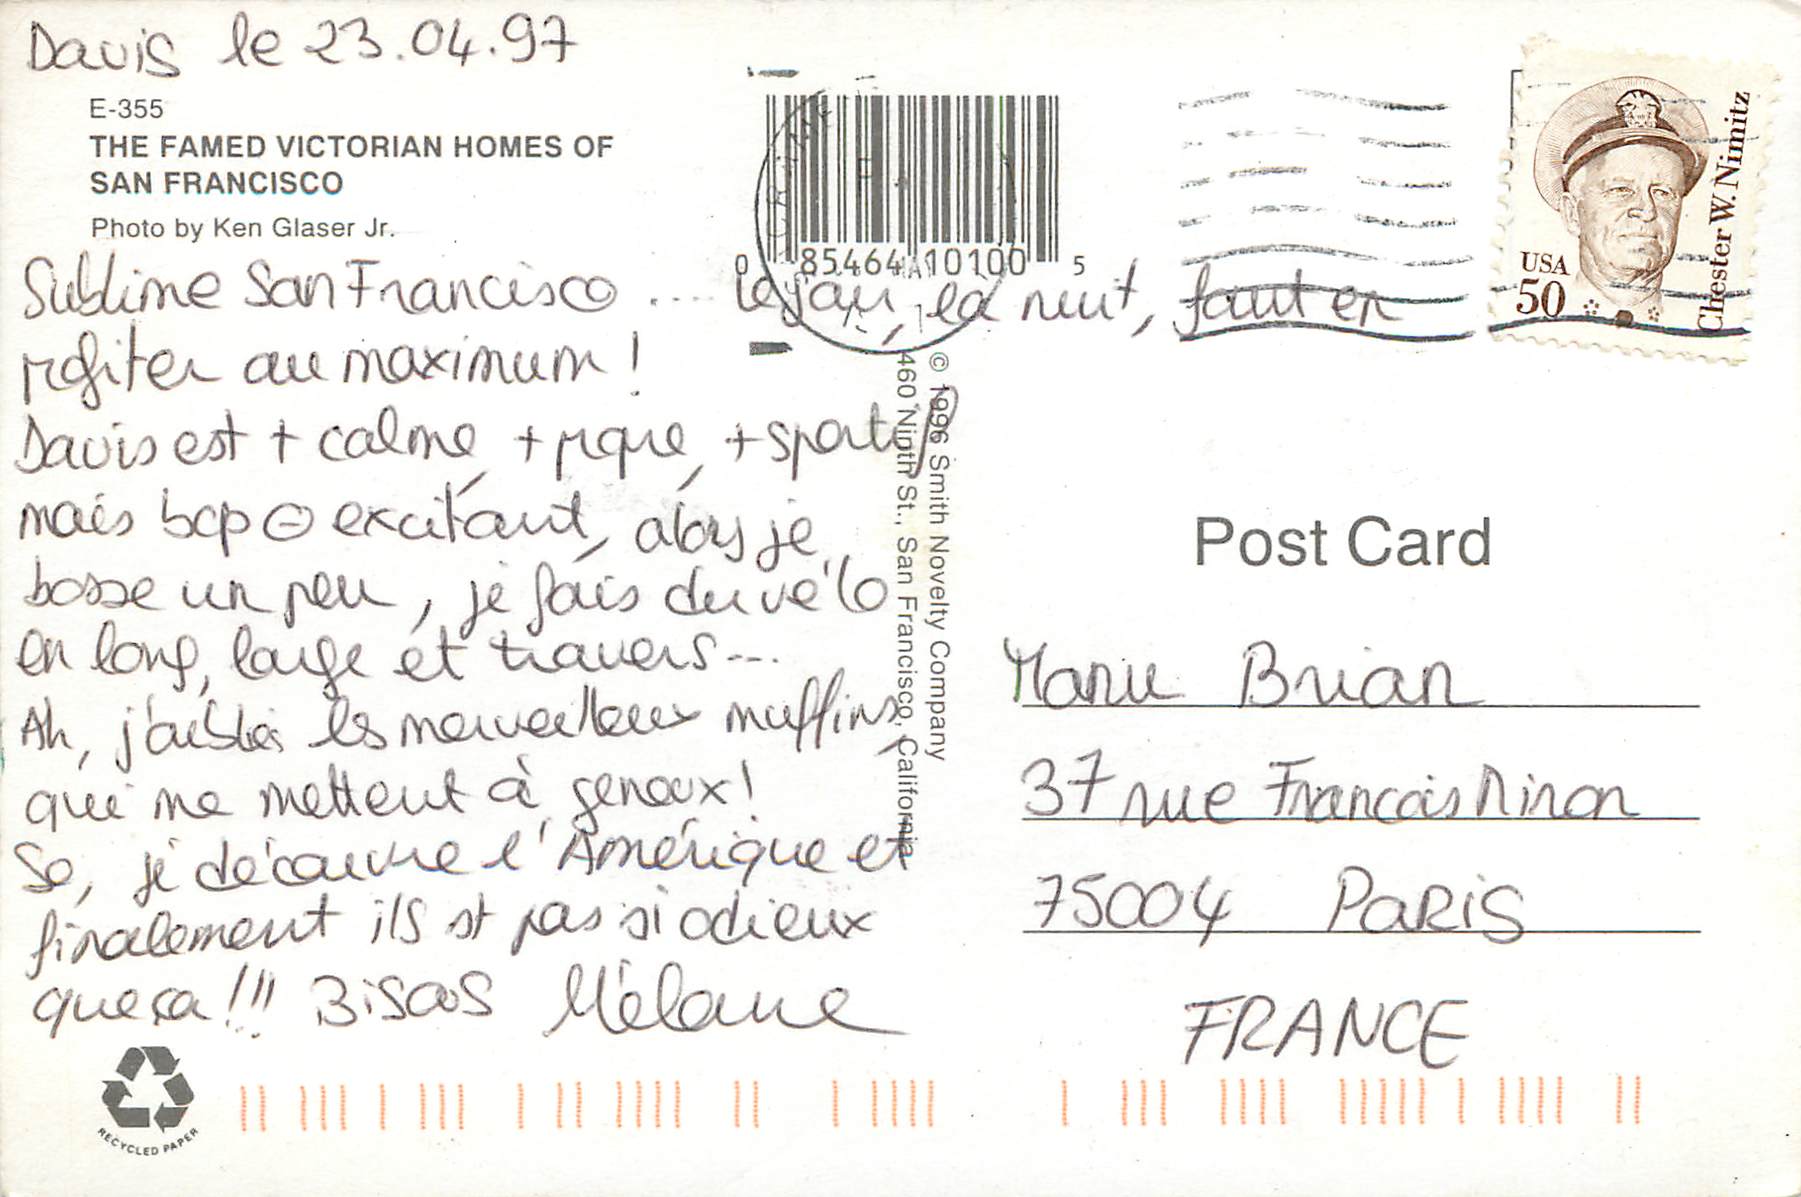 Davis le 23.04.97
E-355
THE FAMED VICTORIAN HOMES OF
SAN FRANCISCO
Photo by Ken Glaser Jr.
0 85464 10100 5
USA
50
Chester W. Nimitz
Sublime San Francisco .... le jour, la nuit, faut en
profiter au maximum !
Davis est + calme, + pépère, + sportif
mais bcp ⊖ excitant, alors je
bosse un peu, je fais du vélo
en long, large et travers ...
Ah, j'oubliais les merveilleux muffins,
qui me mettent à genoux !
So, je découvre l'Amérique et
finalement ils st pas si odieux
que ça !!! Bisous Mélanie
© 1996 Smith Novelty Company
460 Ninth St., San Francisco, California
Post Card
Manu Brian
37 rue Francois Miron
75004 PARIS
FRANCE
RECYCLED PAPER